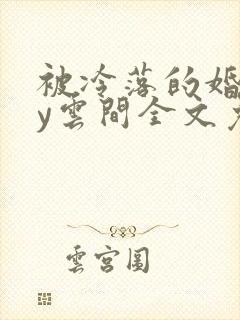 被冷落的婚
y雲間全文免
雲宮圖